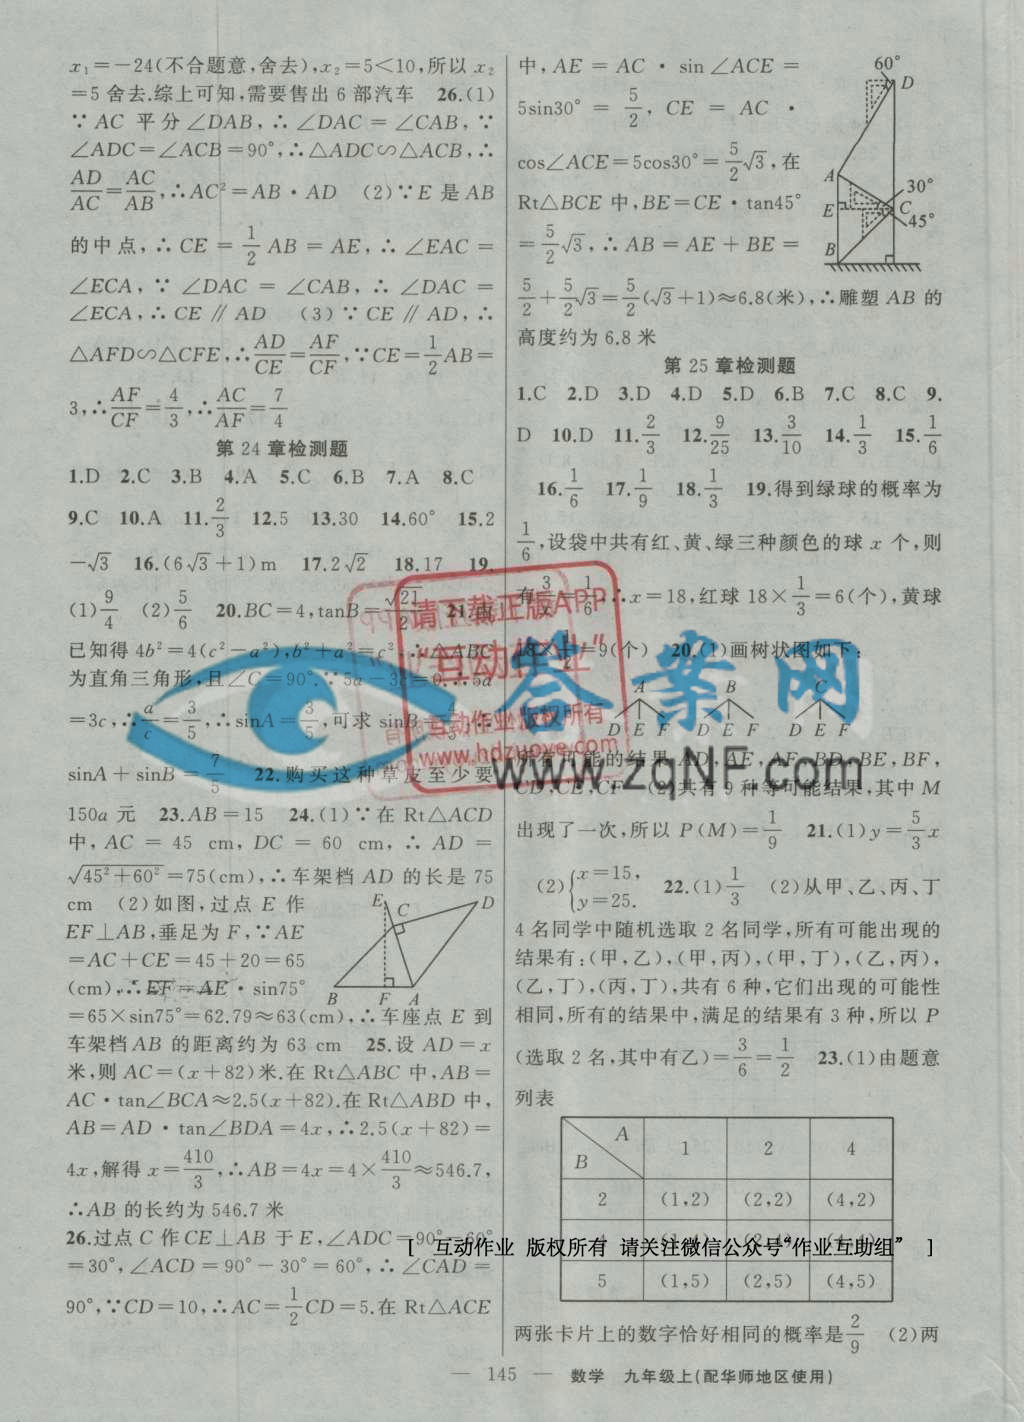 x₁=-24(不合题意,舍去),x₂=5<10,所以 x₂
=5 舍去.综上可知,需要售出 6 部汽车 26.(1)
∵AC 平分∠DAB,∴∠DAC=∠CAB,∵
∠ADC=∠ACB=90°,∴△ADC∽△ACB,∴
AD/AC=AC/AB,∴AC²=AB·AD (2)∵E 是 AB
的中点,∴CE=1/2AB=AE,∴∠EAC=
∠ECA,∵∠DAC=∠CAB,∴∠DAC=
∠ECA,∴CE∥AD (3)∵CE∥AD,∴
△AFD∽△CFE,∴AD/CE=AF/CF,∵CE=1/2AB=
3,∴AF/CF=4/3,∴AC/AF=7/4
第 24 章检测题
1.D 2.C 3.B 4.A 5.C 6.B 7.A 8.C
9.C 10.A 11.2/3 12.5 13.30 14.60° 15.2
-√3 16.(6√3+1)m 17.2√2 18.17 19.
(1)9/4 (2)5/6 20.BC=4,tanB=√21/2 21.由
已知得 4b²=4(c²-a²),b²+a²=c²,∴△ABC
为直角三角形,且∠C=90°.∵5a-3c=0,∴5a
=3c,∴a/c=3/5,∴sinA=3/5,可求 sinB=4/5,∴
sinA+sinB=7/5 22.购买这种草皮至少要
150a 元 23.AB=15 24.(1)∵在 Rt△ACD
中,AC=45 cm,DC=60 cm,∴AD=
√45²+60²=75(cm),∴车架档 AD 的长是 75
cm (2)如图,过点 E 作
EF⊥AB,垂足为 F,∵AE
=AC+CE=45+20=65
(cm),∴EF=AE·sin75°
=65×sin75°=62.79≈63(cm),∴车座点 E 到
车架档 AB 的距离约为 63 cm 25.设 AD=x
米,则 AC=(x+82)米.在 Rt△ABC 中,AB=
AC·tan∠BCA≈2.5(x+82).在 Rt△ABD 中,
AB=AD·tan∠BDA=4x,∴2.5(x+82)=
4x,解得 x=410/3,∴AB=4x=4×410/3≈546.7,
∴AB 的长约为 546.7 米
26.过点 C 作 CE⊥AB 于 E,∠ADC=90°-60°
=30°,∠ACD=90°-30°=60°,∴∠CAD=
90°,∵CD=10,∴AC=1/2CD=5.在 Rt△ACE
E C D
B F A
中,AE=AC·sin∠ACE=
5sin30°=5/2,CE=AC·
cos∠ACE=5cos30°=5/2√3,在
Rt△BCE 中,BE=CE·tan45°
=5/2√3,∴AB=AE+BE=
5/2+5/2√3=5/2(√3+1)≈6.8(米),∴雕塑 AB 的
高度约为 6.8 米
60° D
A 30°
E C 45°
B
第 25 章检测题
1.C 2.D 3.D 4.D 5.D 6.B 7.C 8.C 9.
D 10.D 11.2/3 12.9/25 13.3/10 14.1/3 15.1/6
16.1/6 17.1/9 18.1/3 19.得到绿球的概率为
1/6,设袋中共有红、黄、绿三种颜色的球 x 个,则
有3/x=1/6,∴x=18,红球 18×1/3=6(个),黄球
18×1/2=9(个) 20.(1)画树状图如下:
A B C
D E F D E F D E F
所有可能的结果 AD,AE,AF,BD,BE,BF,
CD,CE,CF (2)共有 9 种等可能结果,其中 M
出现了一次,所以 P(M)=1/9 21.(1)y=5/3x
(2){x=15, y=25. 22.(1)1/3 (2)从甲、乙、丙、丁
4 名同学中随机选取 2 名同学,所有可能出现的
结果有:(甲,乙),(甲,丙),(甲,丁),(乙,丙),
(乙,丁),(丙,丁),共有 6 种,它们出现的可能性
相同,所有的结果中,满足的结果有 3 种,所以 P
(选取 2 名,其中有乙)=3/6=1/2 23.(1)由题意
列表
A B 1 2 4
2 (1,2) (2,2) (4,2)
4 (1,4) (2,4) (4,4)
5 (1,5) (2,5) (4,5)
两张卡片上的数字恰好相同的概率是2/9 (2)两
— 145 — 数学 九年级上(配华师地区使用)
请下载正版APP
“互动作业”
互动作业 版权所有
www.hdzuoye.com
答案网
www.zqNF.com
[ 互动作业 版权所有 请关注微信公众号“作业互助组” ]